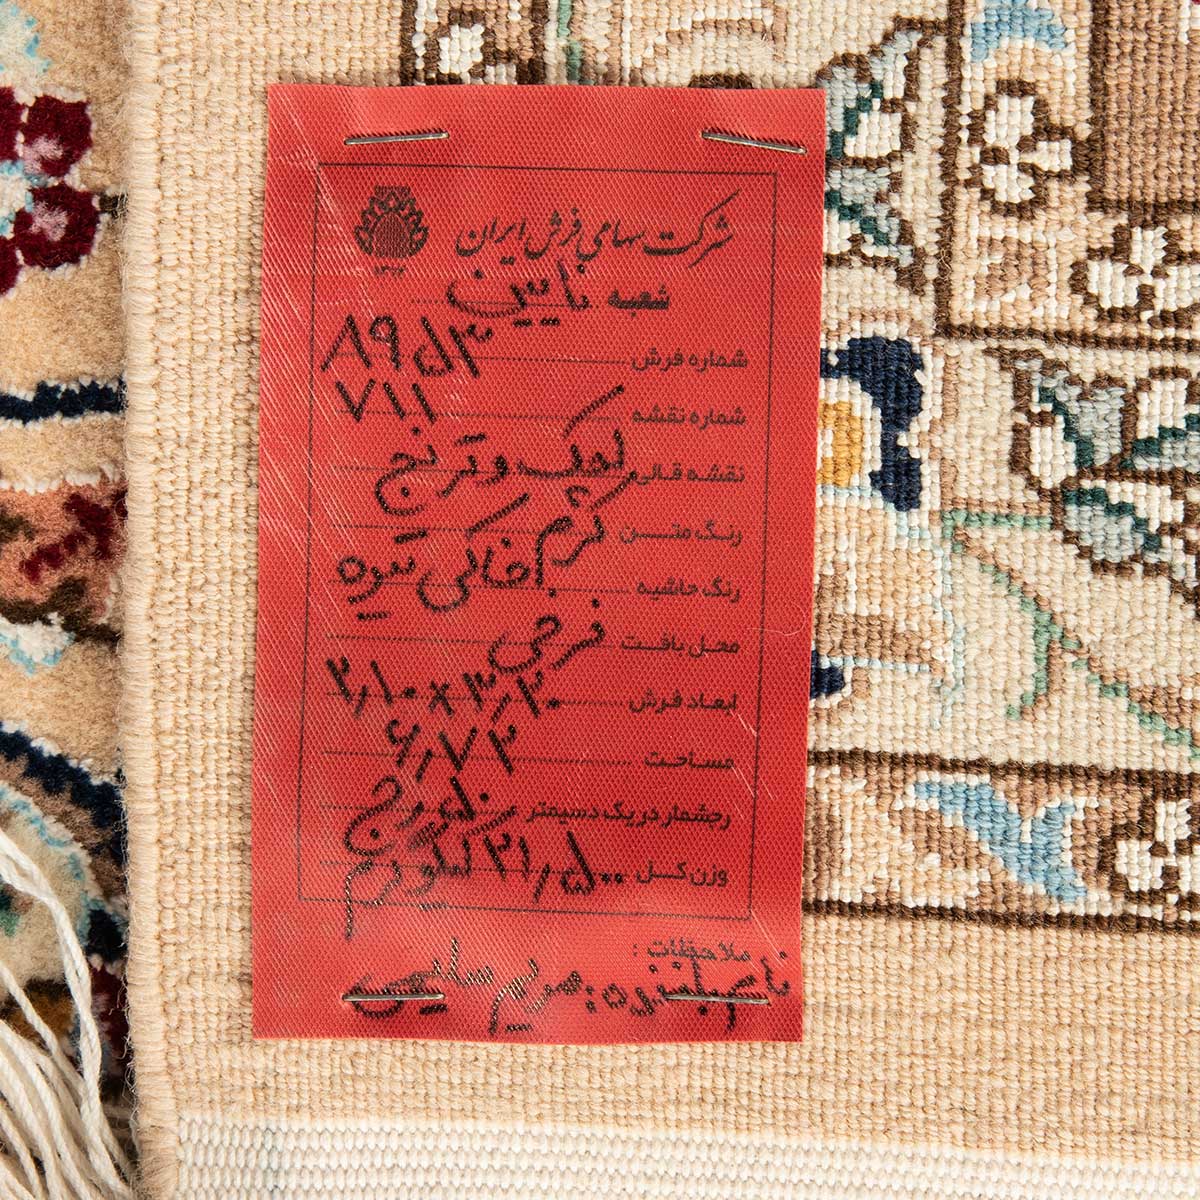 شرکت سهامی فرش ایران
۱۳۱۴
شعبه نایین
شماره فرش ۸۹۵۱۳
شماره نقشه ۷۱۱
نقشه قالی لچک و ترنج
رنگ متن کرم
رنگ حاشیه خاکی تیره
محل بافت
ابعاد فرش ۲٫۱۰ × ۳٫۲۰
مساحت ۶٫۷۲
رجشمار در یک دسیمتر رج
وزن کل ۲۱٫۵۰۰ کیلوگرم
ملاحظات :
نام بافنده : مریم